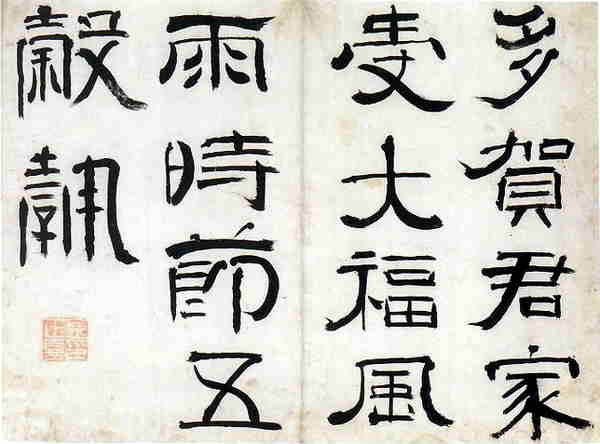 多賀君家
受大福風
雨時節五
穀孰